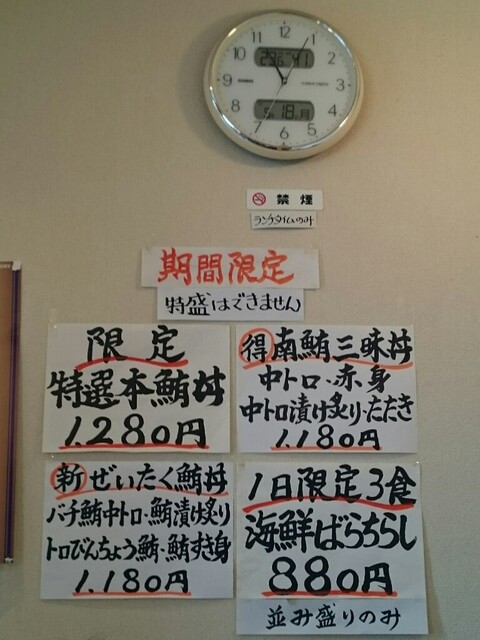 12
1
2
3
4
5
6
7
8
9
10
11
18
月
禁煙
ランチタイムのみ
期間限定
特盛はできません
限定
特選本鮪丼
1.280円
得 南鮪三昧丼
中トロ・赤身
中トロ漬け炙り・たたき
1.180円
新 ぜいたく鮪丼
バチ鮪中トロ・鮪漬け炙り
トロびんちょう鮪・鮪すき身
1.180円
1日限定3食
海鮮ばらちらし
880円
並み盛りのみ